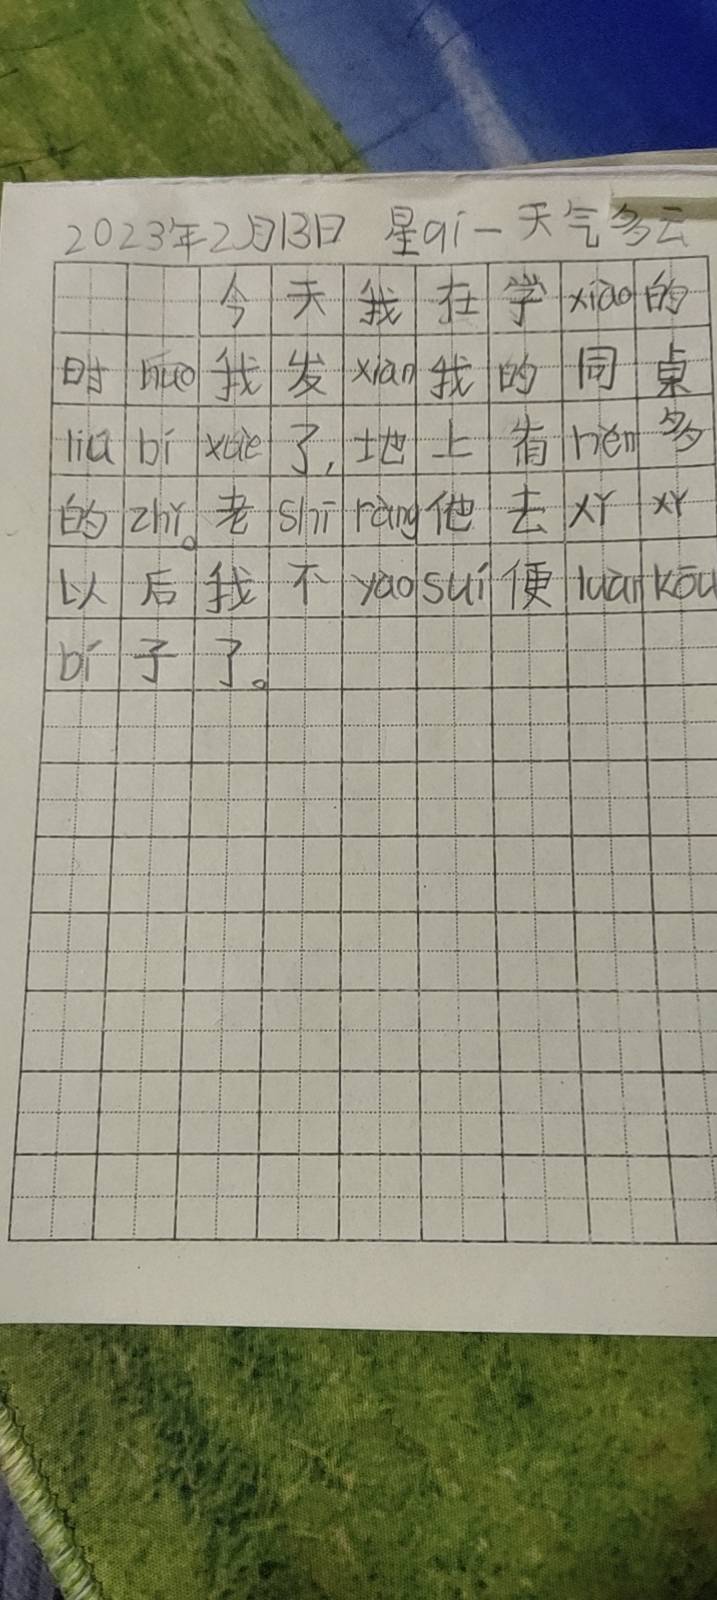 2023年2月13日 星qí一天气多云
今天我在学xiào的
时huo我发xiàn我的同桌
liú bí xuě了,地上有hěn多
的zhǐ。老shī ràng他去xǐ xǐ
以后我不yào suí便luàn kōu
bí子了。